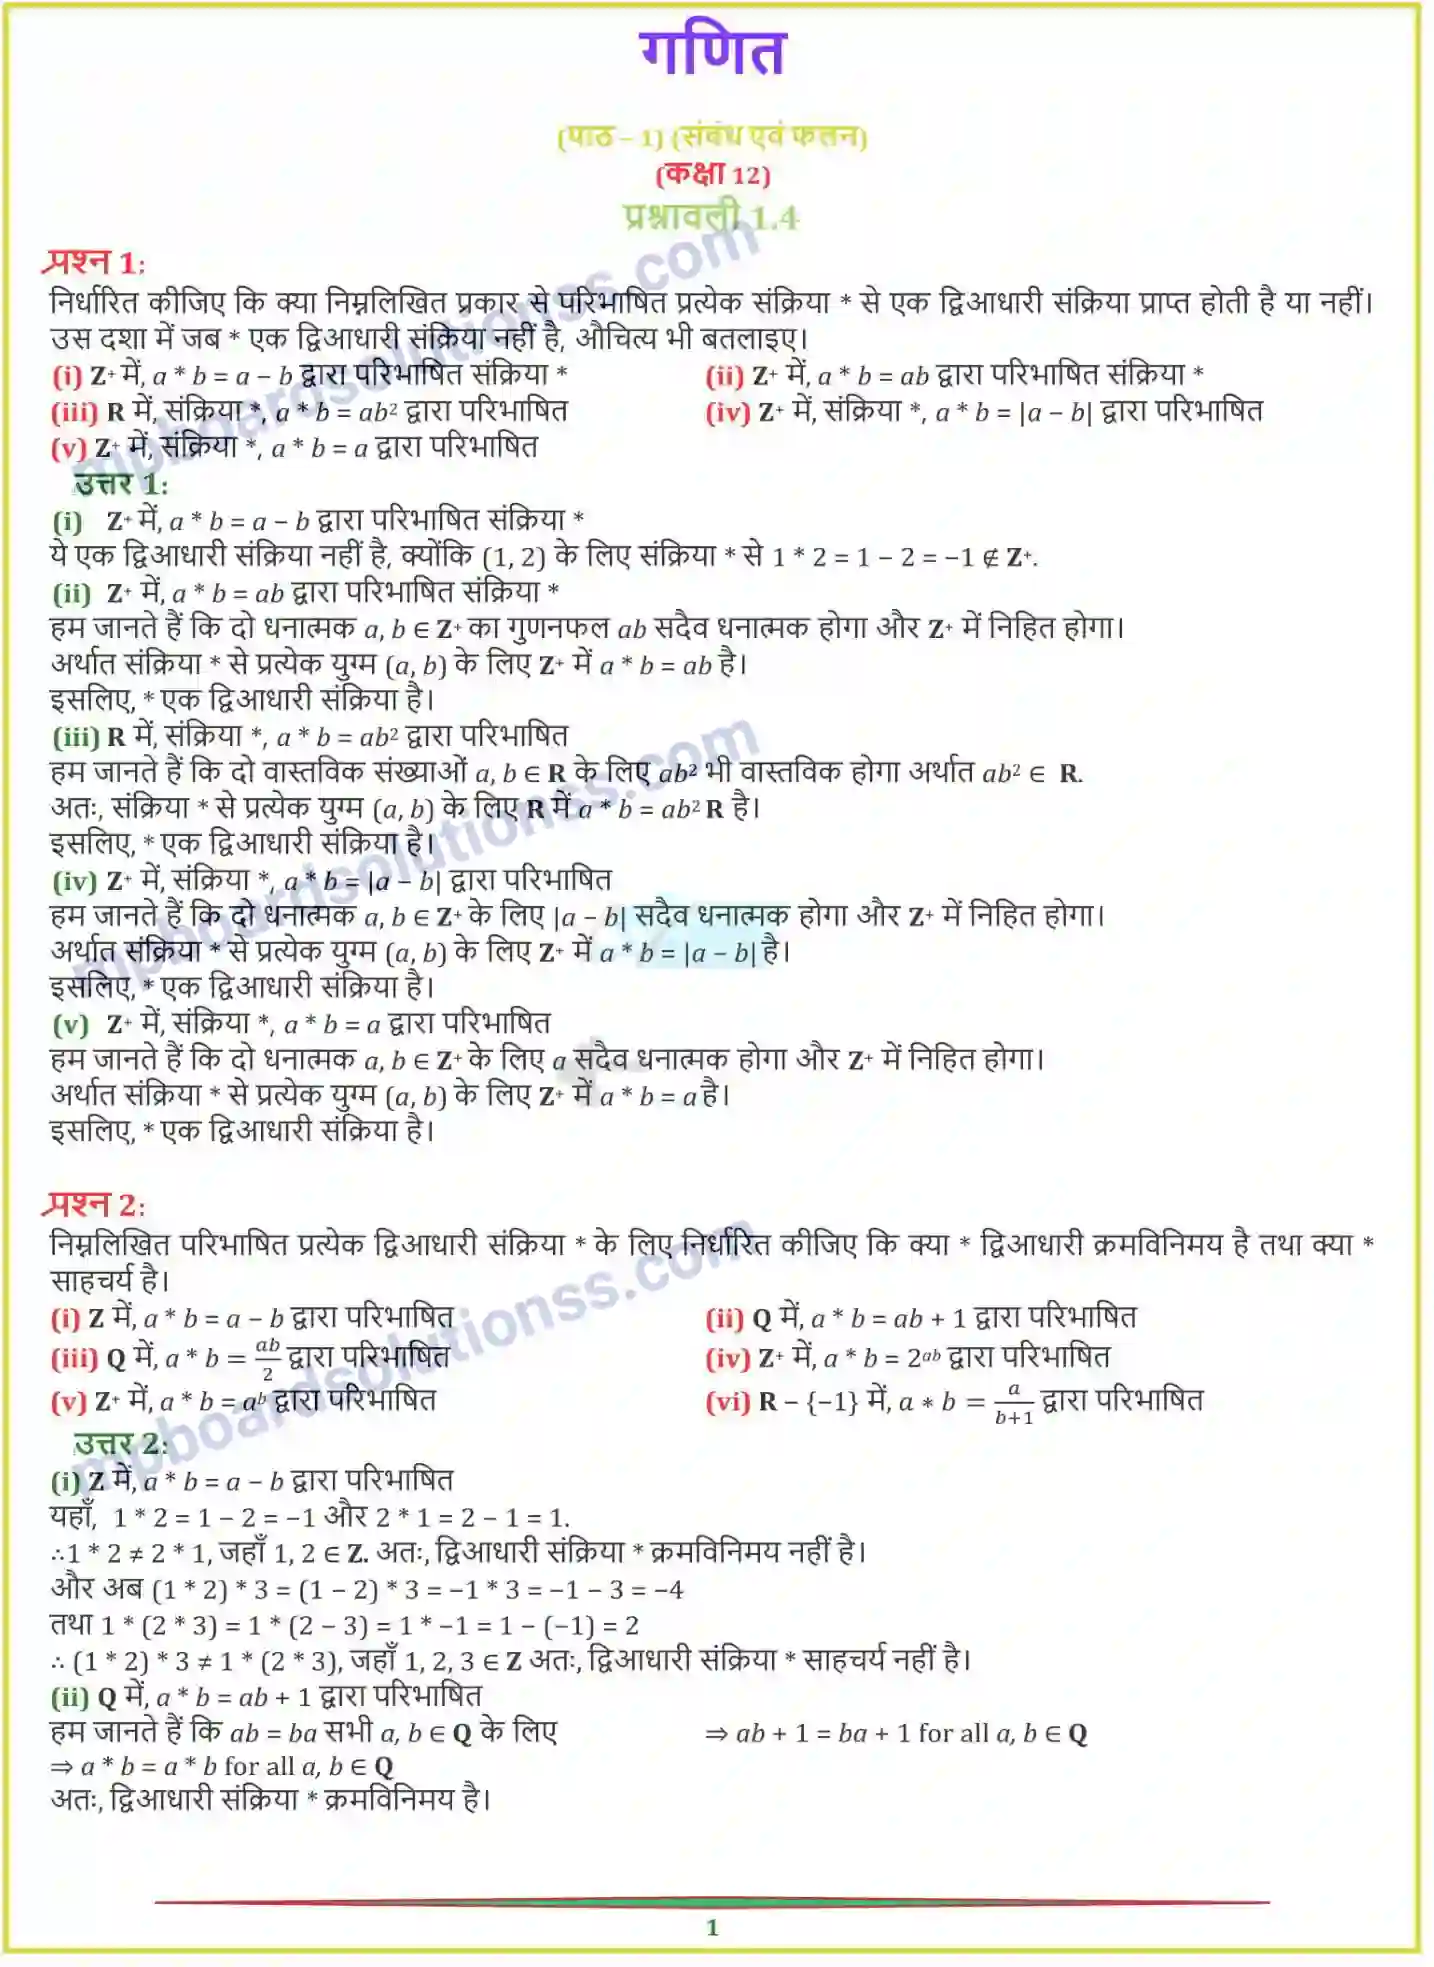 गणित
(पाठ – 1) (संबंध एवं फलन)
(कक्षा 12)
प्रश्नावली 1.4
प्रश्न 1:
निर्धारित कीजिए कि क्या निम्नलिखित प्रकार से परिभाषित प्रत्येक संक्रिया * से एक द्विआधारी संक्रिया प्राप्त होती है या नहीं।
उस दशा में जब * एक द्विआधारी संक्रिया नहीं है, औचित्य भी बतलाइए।
(i) Z⁺ में, a * b = a – b द्वारा परिभाषित संक्रिया * (ii) Z⁺ में, a * b = ab द्वारा परिभाषित संक्रिया *
(iii) R में, संक्रिया *, a * b = ab² द्वारा परिभाषित (iv) Z⁺ में, संक्रिया *, a * b = |a – b| द्वारा परिभाषित
(v) Z⁺ में, संक्रिया *, a * b = a द्वारा परिभाषित
उत्तर 1:
(i) Z⁺ में, a * b = a – b द्वारा परिभाषित संक्रिया *
ये एक द्विआधारी संक्रिया नहीं है, क्योंकि (1, 2) के लिए संक्रिया * से 1 * 2 = 1 – 2 = –1 ∉ Z⁺.
(ii) Z⁺ में, a * b = ab द्वारा परिभाषित संक्रिया *
हम जानते हैं कि दो धनात्मक a, b ∈ Z⁺ का गुणनफल ab सदैव धनात्मक होगा और Z⁺ में निहित होगा।
अर्थात संक्रिया * से प्रत्येक युग्म (a, b) के लिए Z⁺ में a * b = ab है।
इसलिए, * एक द्विआधारी संक्रिया है।
(iii) R में, संक्रिया *, a * b = ab² द्वारा परिभाषित
हम जानते हैं कि दो वास्तविक संख्याओं a, b ∈ R के लिए ab² भी वास्तविक होगा अर्थात ab² ∈ R.
अतः, संक्रिया * से प्रत्येक युग्म (a, b) के लिए R में a * b = ab² R है।
इसलिए, * एक द्विआधारी संक्रिया है।
(iv) Z⁺ में, संक्रिया *, a * b = |a – b| द्वारा परिभाषित
हम जानते हैं कि दो धनात्मक a, b ∈ Z⁺ के लिए |a – b| सदैव धनात्मक होगा और Z⁺ में निहित होगा।
अर्थात संक्रिया * से प्रत्येक युग्म (a, b) के लिए Z⁺ में a * b = |a – b| है।
इसलिए, * एक द्विआधारी संक्रिया है।
(v) Z⁺ में, संक्रिया *, a * b = a द्वारा परिभाषित
हम जानते हैं कि दो धनात्मक a, b ∈ Z⁺ के लिए a सदैव धनात्मक होगा और Z⁺ में निहित होगा।
अर्थात संक्रिया * से प्रत्येक युग्म (a, b) के लिए Z⁺ में a * b = a है।
इसलिए, * एक द्विआधारी संक्रिया है।
प्रश्न 2:
निम्नलिखित परिभाषित प्रत्येक द्विआधारी संक्रिया * के लिए निर्धारित कीजिए कि क्या * द्विआधारी क्रमविनिमय है तथा क्या *
साहचर्य है।
(i) Z में, a * b = a – b द्वारा परिभाषित (ii) Q में, a * b = ab + 1 द्वारा परिभाषित
(iii) Q में, a * b = ab/2 द्वारा परिभाषित (iv) Z⁺ में, a * b = 2ᵃᵇ द्वारा परिभाषित
(v) Z⁺ में, a * b = aᵇ द्वारा परिभाषित (vi) R – {–1} में, a * b = a/(b+1) द्वारा परिभाषित
उत्तर 2:
(i) Z में, a * b = a – b द्वारा परिभाषित
यहाँ, 1 * 2 = 1 – 2 = –1 और 2 * 1 = 2 – 1 = 1.
∴1 * 2 ≠ 2 * 1, जहाँ 1, 2 ∈ Z. अतः, द्विआधारी संक्रिया * क्रमविनिमय नहीं है।
और अब (1 * 2) * 3 = (1 – 2) * 3 = –1 * 3 = –1 – 3 = –4
तथा 1 * (2 * 3) = 1 * (2 – 3) = 1 * –1 = 1 – (–1) = 2
∴ (1 * 2) * 3 ≠ 1 * (2 * 3), जहाँ 1, 2, 3 ∈ Z अतः, द्विआधारी संक्रिया * साहचर्य नहीं है।
(ii) Q में, a * b = ab + 1 द्वारा परिभाषित
हम जानते हैं कि ab = ba सभी a, b ∈ Q के लिए ⇒ ab + 1 = ba + 1 for all a, b ∈ Q
⇒ a * b = a * b for all a, b ∈ Q
अतः, द्विआधारी संक्रिया * क्रमविनिमय है।
1
mpboardsolutionss.com
mpboardsolutionss.com
mpboardsolutionss.com